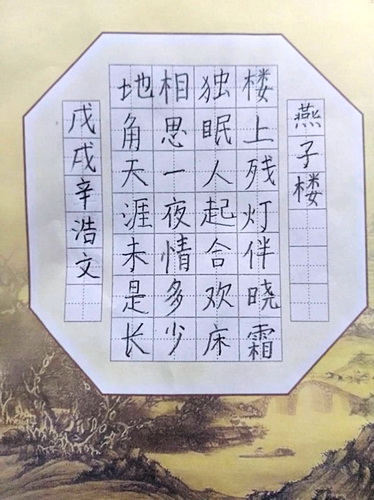 燕子楼
楼上残灯伴晓霜
独眠人起合欢床
相思一夜情多少
地角天涯未是长
戊戌辛浩文